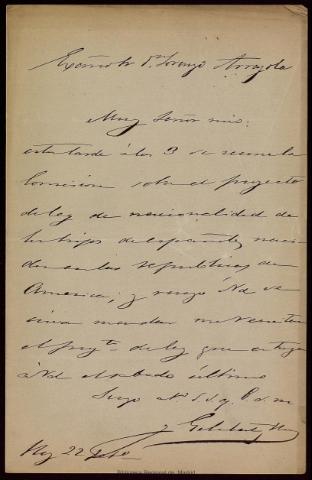 Excmo Sr Dn Lorenzo Arrazola
Muy Señor mio:
esta tarde á las 3 se reune la
Comision sobre el proyecto
de ley de nacionalidad de
los hijos de españoles naci
dos en las republicas de
America; y ruego á Vd se
sirva mandar
el proyto de ley que entregué
á Vd el sabado último
Suyo
J
Hoy 22
Biblioteca Nacional de Madrid